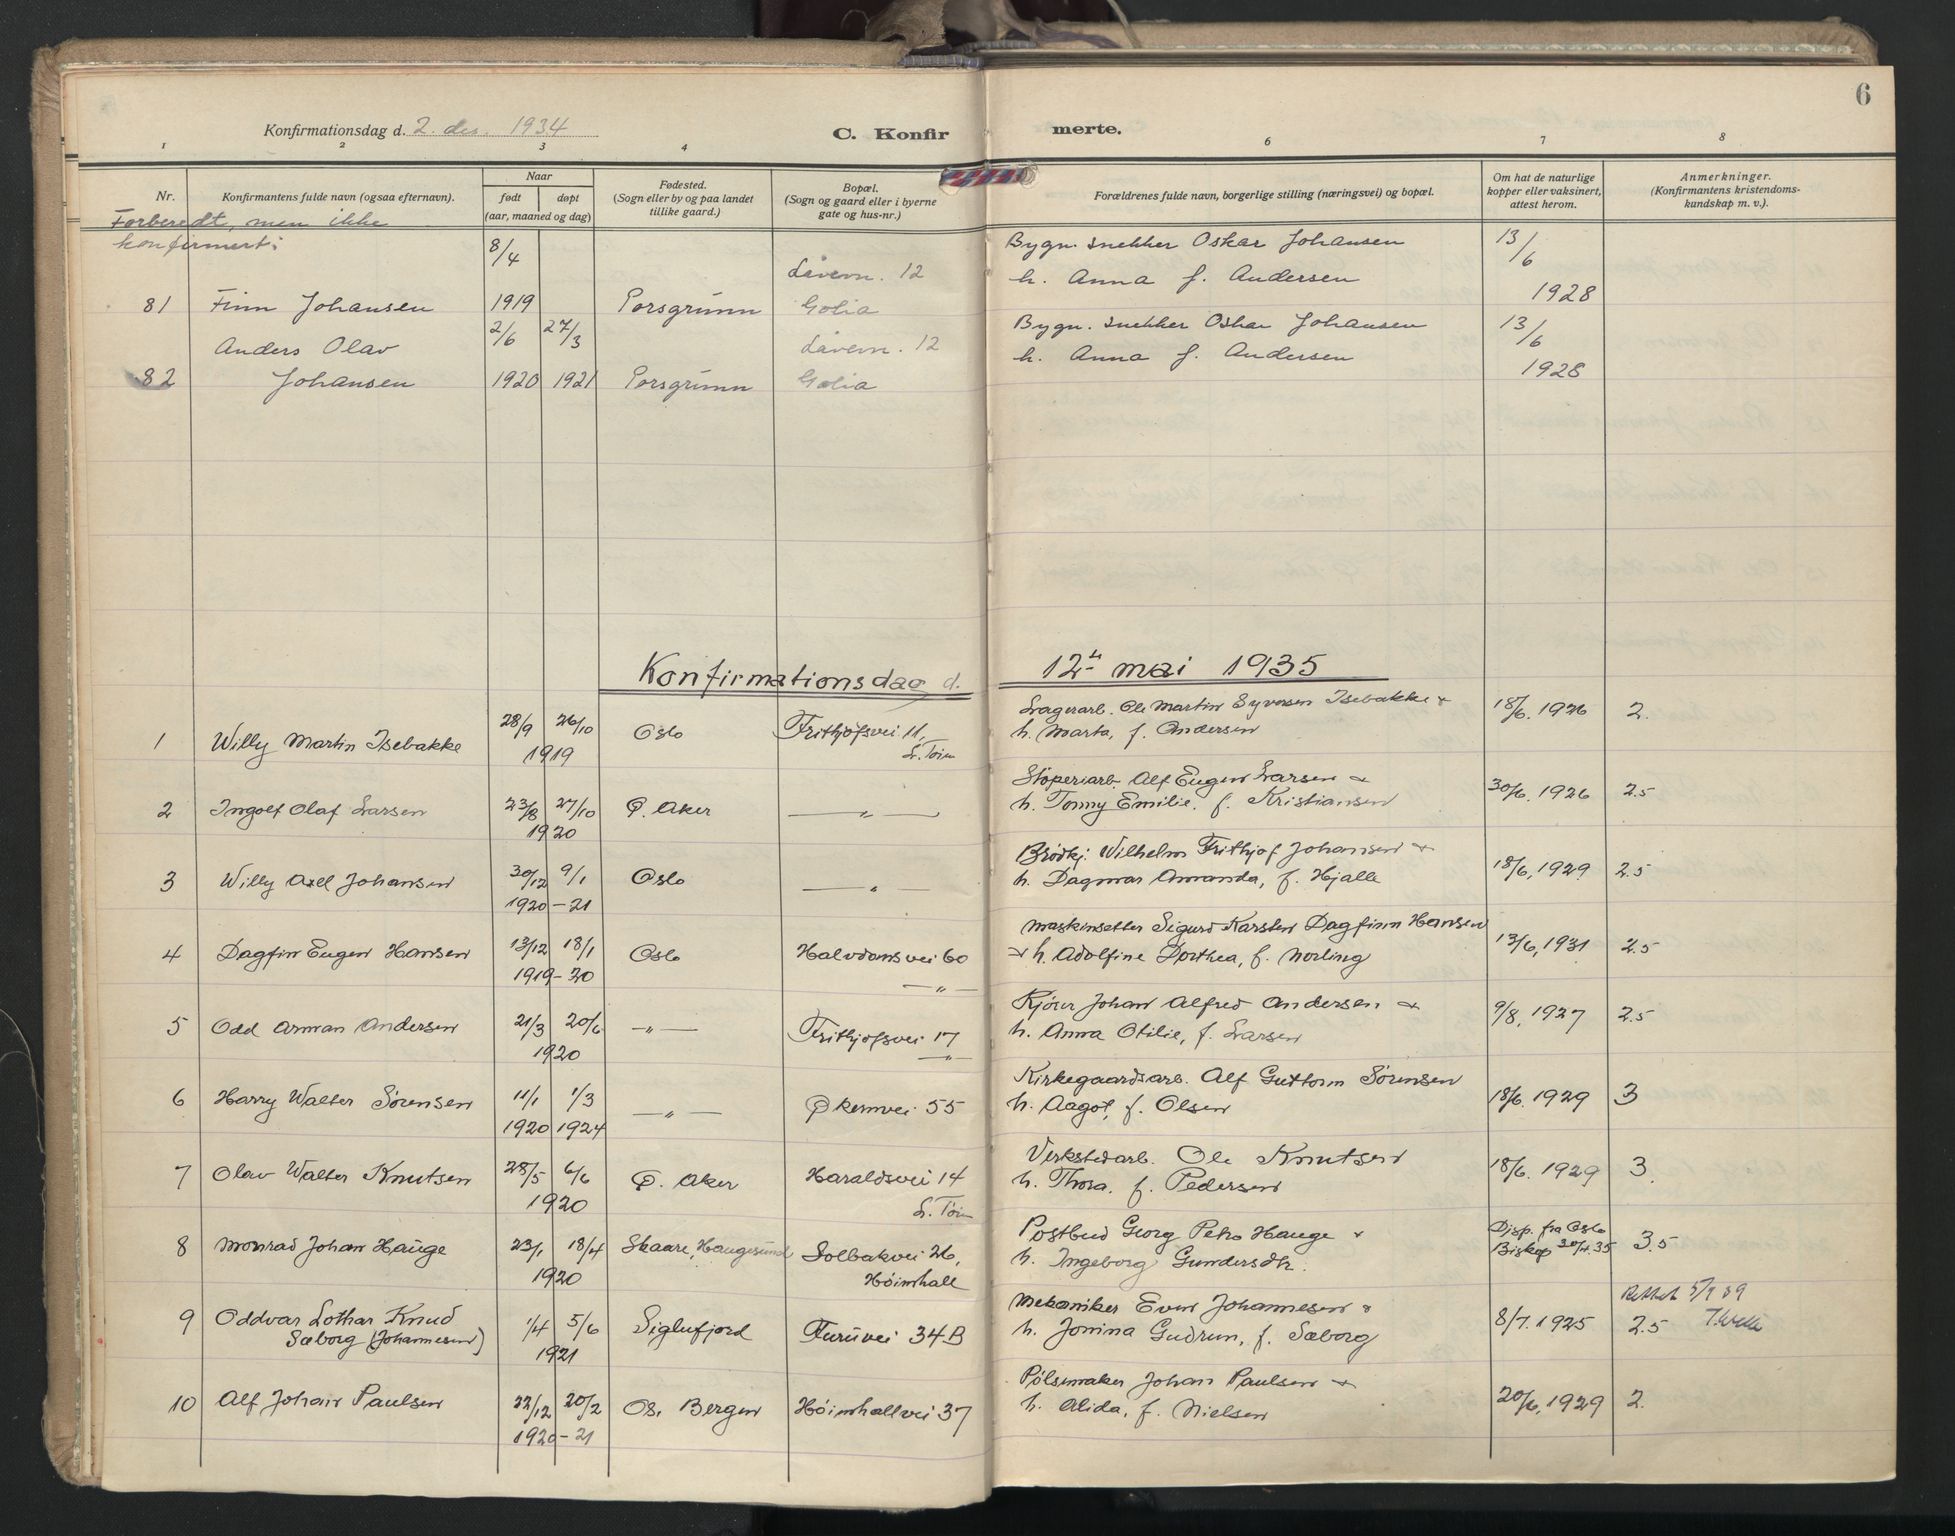 6
Konfirmationsdag d. 2. des. 1934
C. Konfirmerte.
1 2 3 4 6 7 8
Nr.
Konfirmantens fulde navn (ogsaa efternavn).
Naar
født døpt
(aar, maaned og dag)
Fødested.
(Sogn eller by og paa landet
tillike gaard.)
Bopæl.
(Sogn og gaard eller i byerne
gate og hus-nr.)
Forældrenes fulde navn, borgerlige stilling (næringsvei) og bopæl.
Om hat de naturlige
kopper eller vaksinert,
attest herom.
Anmerkninger.
(Konfirmantens kristendoms-
kundskap m. v.).
Forberedt, men ikke
konfirmert:
8/4 Bygn. snekker Oskar Johansen 13/6
Låvern. 12 h. Anna f. Andersen
81 Finn Johansen 1919 Porsgrunn Golia 1928
2/6 27/3 Bygn. snekker Oskar Johansen 13/6
Anders Olav Låvern. 12 h. Anna f. Andersen
82 Johansen 1920 1921 Porsgrunn Golia 1928
Konfirmationsdag d. 12te mai 1935
28/9 26/10 Lagerarb. Ole Martin Syversen Isebakke + 18/6. 1926 2.
1 Willy Martin Isebakke 1919 Oslo Frithjofsvei 11, h. Marta, f. Andersen
L. Tøien
Støperiarb. Alf Eugen Larsen +
2 Ingolf Olaf Larsen 23/8 27/10 Ø. Aker —„— h. Tonny Emilie, f. Kristiansen 30/6. 1926 2.5
1920
Brødkj. Wilhelm Frithjof Johansen +
3 Willy Axel Johansen 30/12 9/1 Oslo —„ h. Dagmar Amanda, f. Hjalle 18/6, 1929 2.5
1920-21
Maskinsetter Sigurd Karsten Dagfinn Hansen
4 Dagfin Eugen Hansen 13/12 18/1 Oslo Halvdansvei 60 + h. Adolfine Dorthea, f. Norling 13/6, 1931 2.5
1919-20 —„—
Kjører Johan Alfred Andersen +
5 Odd Arman Andersen 21/3 20/6 —„— Frithjofsvei 17 h. Anna Otilie, f. Larsen 9/8, 1927 2.5
1920 —„—
Kirkegaardsarb. Alf Guttorm Sørensen
6 Harry Walter Sørensen 11/1 1/3 —„— Økernvei 55 h. Aagot, f. Olsen 18/6. 1929 3
1920 1924
Verkstedarb. Ole Knutsen
7 Olav Walter Knutsen 28/5 6/6 Ø. Aker Haraldsvei 14 h. Thora. f. Pedersen 18/6. 1929 3.
1920 L. Tøien
Postbud Georg Petro Hauge + Disp. fra Oslo
8 Monrad Johan Hauge 23/1 18/4 Skaare, Haugesund Solbakvei 26, h. Ingeborg Gundersdtr. Biskop 30/4.35 3.5
1920 Høienhall
Rettet 5/9 39
9 Oddvar Lothar Knud Mekaniker Even Johannesen +
Sæborg (Johannesen) 1/4 5/6 Siglufjord Furuvei 34B h. Jonina Gudrun, f. Sæborg 8/7. 1925 2.5
1921
Pølsemaker Johan Paulsen +
10 Alf Johan Paulsen 22/12 20/2 Os, Bergen Høienhallvei 37 h. Alida, f. Nielsen 20/6, 1929 2.
1920-21